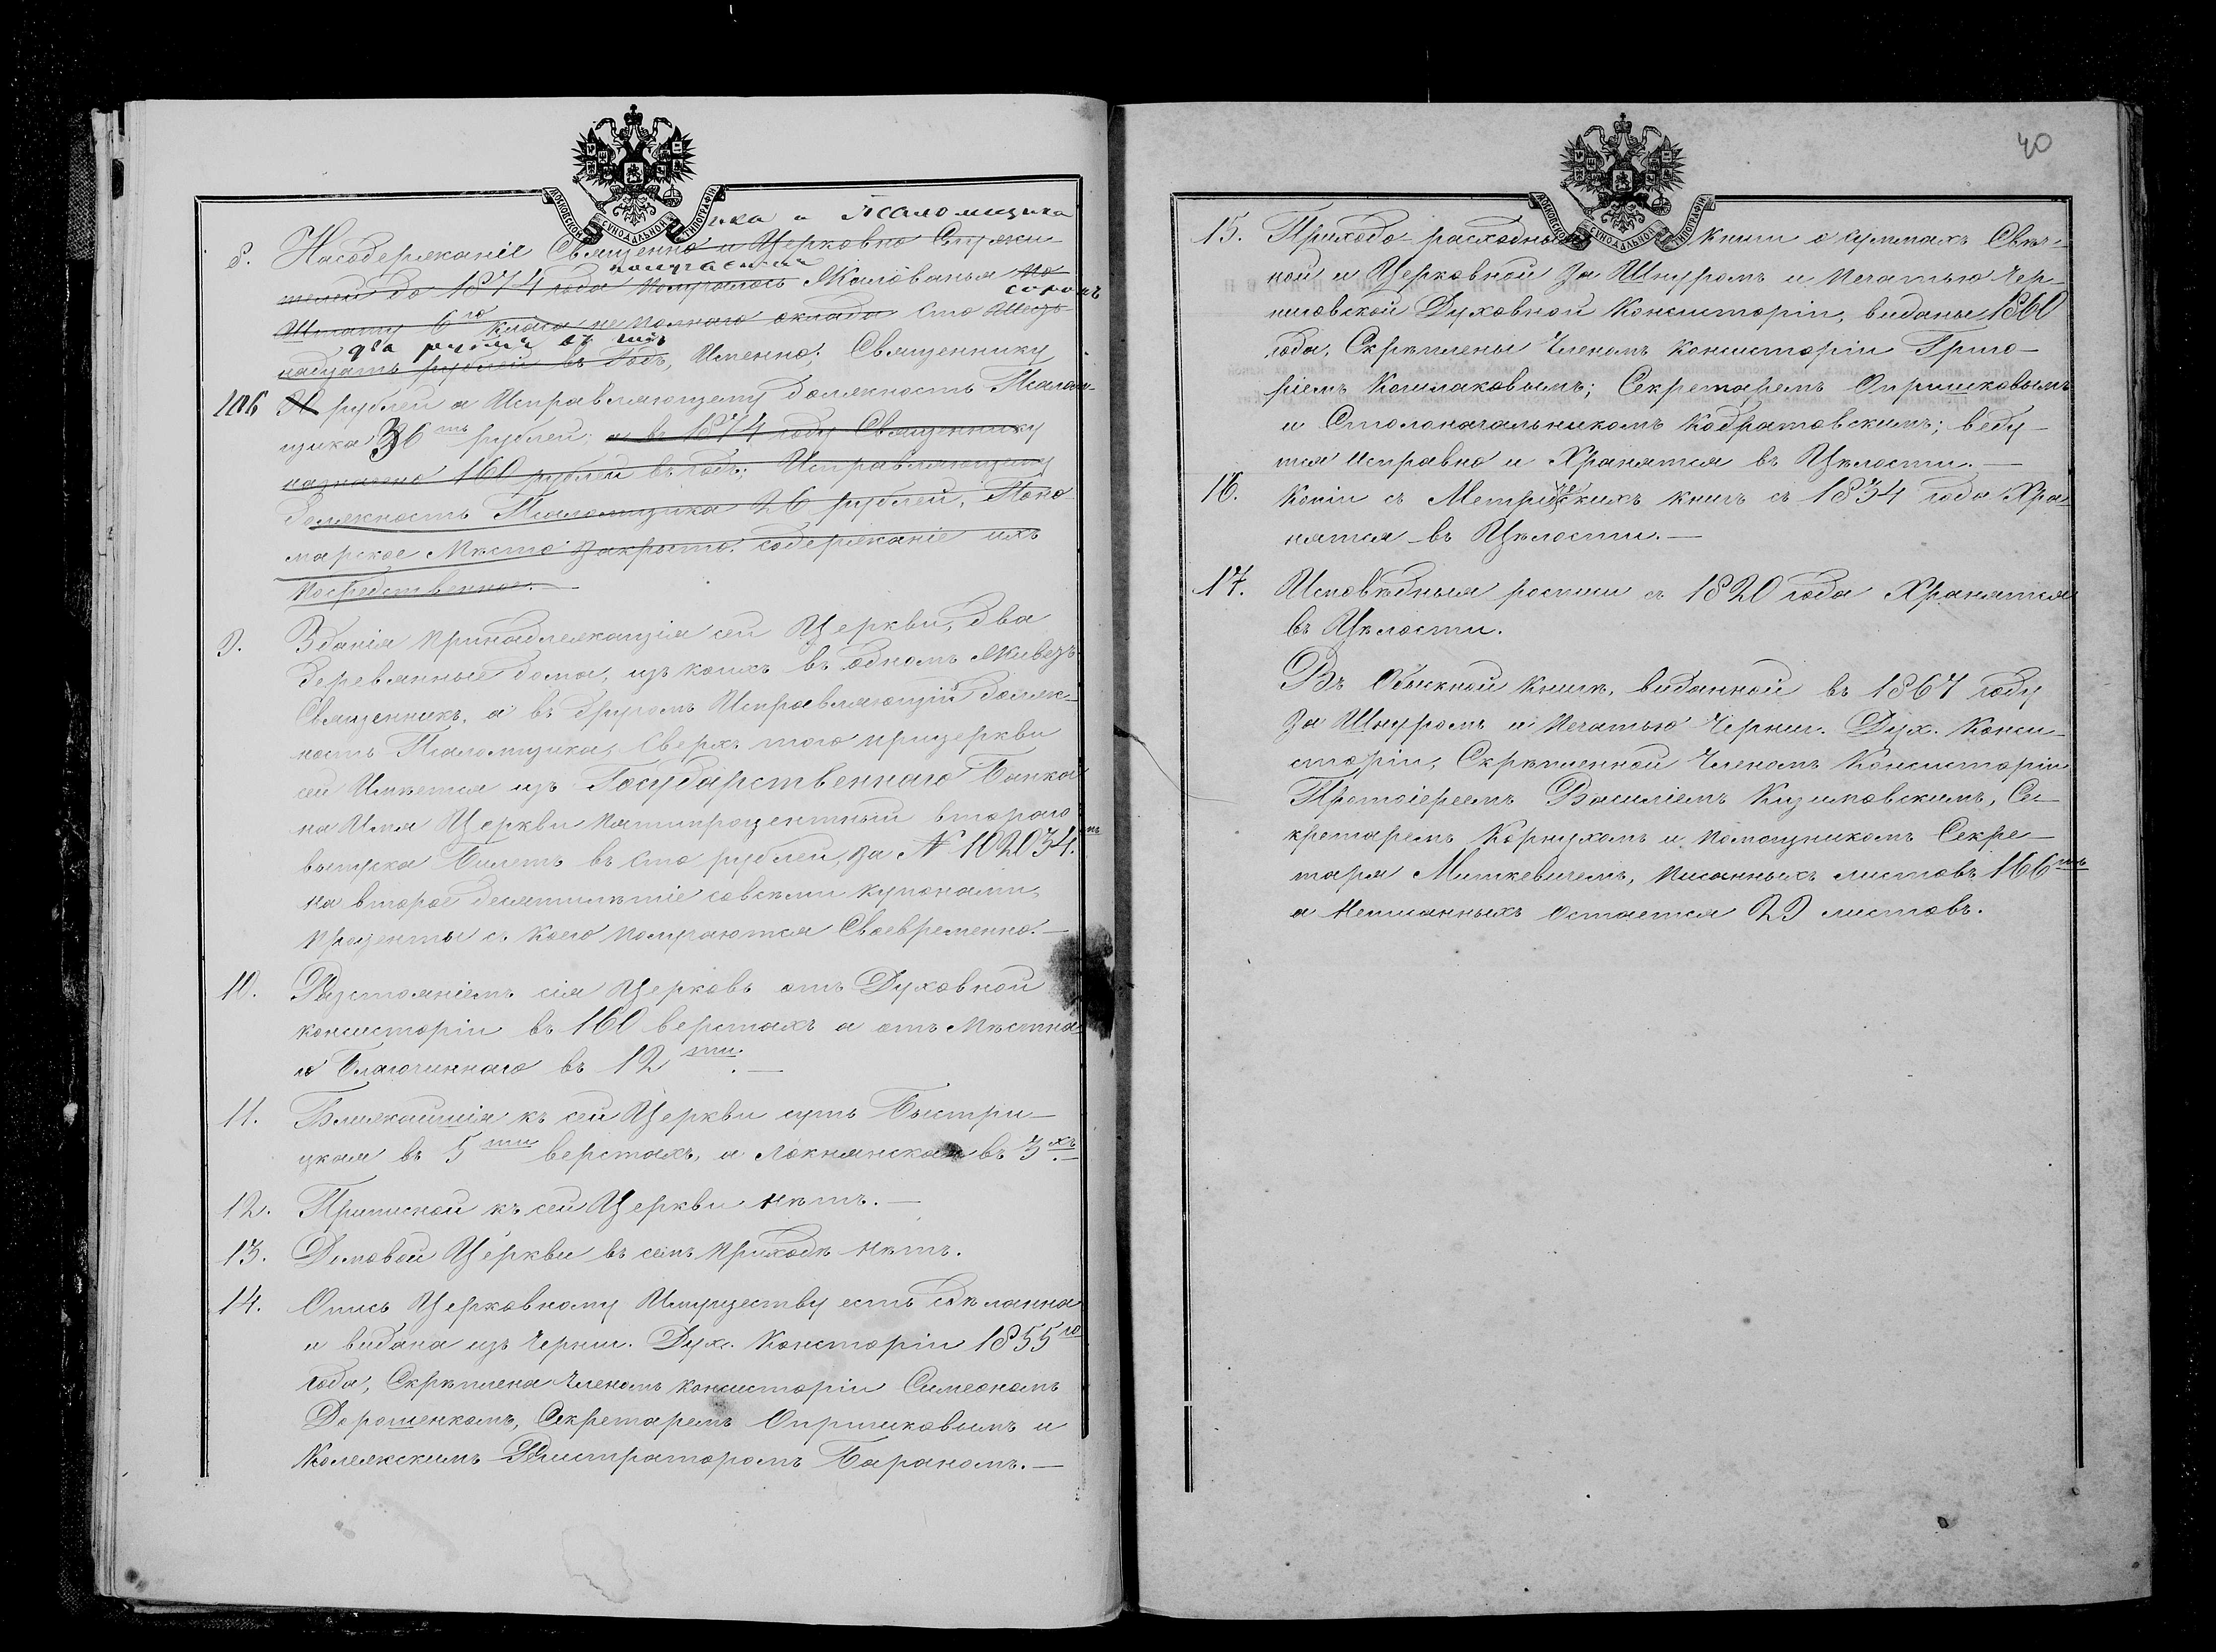 40
МОСКОВСКОЙ СУНОДАЛЬНОЙ ТИПОГРАФІИ
ика и Псаломщика
8. На содержаніе Священно и Церковно Служи-
получается
телей до 1874 года получалось Жалованья по
сорокъ
Штату 6го класса не полнаго оклада Сто Шест-
два рубля въ годъ
надцать рублей въ годъ, Именно: Священнику
106 рублей а Исправляющему должность Псалом-
щика 36ть рублей; а въ 1874 году Священнику
назначено 160 рублей въ годъ; Исправляющему
должность Псаломщика 26 рублей, Поно
марское Мѣсто закрыто. содержаніе ихъ
посредственное.—
9. Зданія принадлежащія сей Церкви, два
деревянные дома, изъ коихъ въ одномъ живетъ
Священникъ, а въ другомъ Исправляющій долж-
ность Псаломщика, Сверхъ того при церкви
сей Имѣется изъ Государственнаго Банка
на Имя Церкви пятипроцентный втораго
выпуска Билетъ въ сто рублей, за № 102034.
на второе десятилѣтіе со всѣми купонами,
проценты съ коего получаются Своевременно.—
10. Разстояніемъ сія Церковь отъ Духовной
консисторіи въ 160 верстахъ а отъ Мѣстна
го Благочиннаго въ 12ти.—
11. Ближайшія къ сей Церкви суть Быстри-
цкая въ 5ти верстахъ, а Локнянская въ 3хъ.—
12. Приписной къ сей Церкви нѣтъ.—
13. Домовой Церкви въ семъ приходѣ нѣтъ.
14. Опись Церковному Имуществу есть сдѣланна
и видана изъ Черниг. Дух. Консторіи 1855го
года, Скрѣплена Членомъ консисторіи Симеономъ
Дорошенкомъ, Секретаремъ Опришковымъ и
Колежскимъ Регистраторомъ Бараномъ.—
МОСКОВСКОЙ СУНОДАЛЬНОЙ ТИПОГРАФІИ
15. Приходо-расходныя Книги о суммахъ Свѣч-
ной и Церковной за Шнуромъ и печатью Чер-
ниговской Духовной Консисторіи, виданы 1860
года, Скрѣплены Членомъ Консисторіи Григо-
ріемъ Секретаремъ Опришковымъ
и Столоначальникомъ Кодратовскимъ; веду-
тся Исправно и Хранятся въ Цѣлости.—
16. Копіи съ Метрическихъ книгъ съ 1834 года Хра-
нятся въ Цѣлости.—
17. Исповѣдныя росписи съ 1820 года Хранятся
въ Цѣлости.
Въ Обыскной книгѣ, виданной въ 1867 году
за Шнуромъ и печатью Черниг. Дух. Конси-
сторіи, Скрѣпленной Членомъ Консисторіи
Протоіереемъ Василіемъ Се-
кретаремъ Корнухомъ и помощникомъ Секре-
таря Миткевичемъ, писанныхъ листовъ 166ть
а Неписанныхъ остается 29 листовъ.